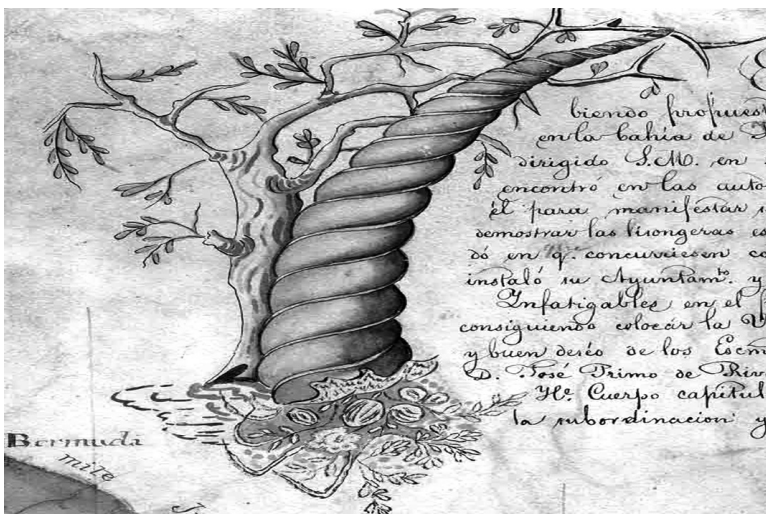 biendo propuest
en la bahía de
dirigido S.M. en
encontró en las auto
él para manifestar
demostrar las lisongeras es
dó en q. concurriesen co
instaló su Ayuntamto. y
Infatigables en el
consiguiendo colocar la V
y buen deséo de los Escm
D. José Primo de Riv
Ye. Cuerpo capitul
la subordinacion y
Bermudi
mile
J.